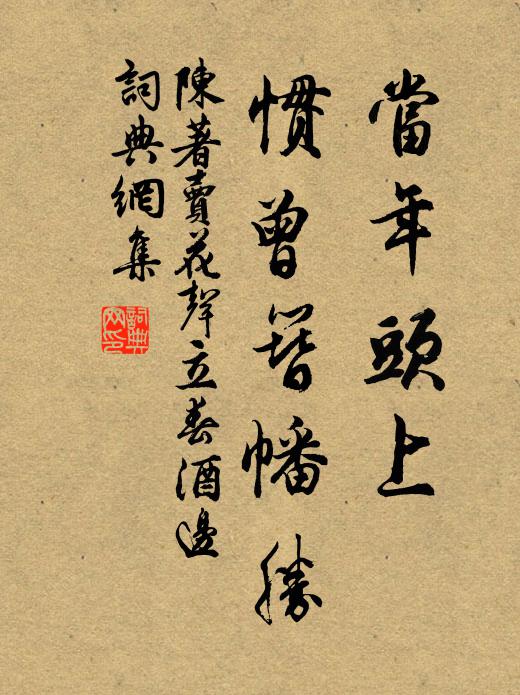 當年頭上
慣曾簪幡勝
陳著賣花聲立春酒邊
詞典網集
詞典網印